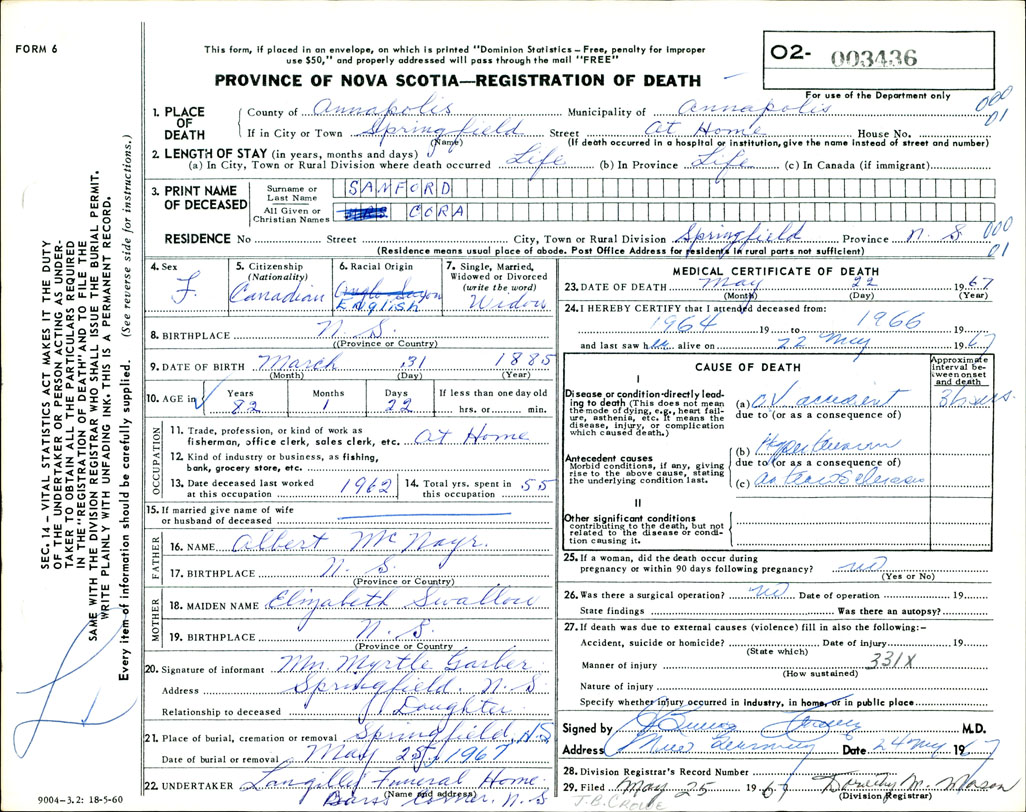 FORM 6
This form, if placed in an envelope, on which is printed "Dominion Statistics – Free, penalty for improper
use $50," and properly addressed will pass through the mail "FREE"
PROVINCE OF NOVA SCOTIA—REGISTRATION OF DEATH
02- 003436
For use of the Department only
000
01
1. PLACE OF DEATH
County of Annapolis Municipality of Annapolis
If in City or Town Springfield Street At Home House No.
(Name) (If death occurred in a hospital or institution, give the name instead of street and number)
2. LENGTH OF STAY (in years, months and days)
(a) In City, Town or Rural Division where death occurred Life (b) In Province Life (c) In Canada (if immigrant)
3. PRINT NAME OF DECEASED
Surname or Last Name SANFORD
All Given or Christian Names MRS CORA
RESIDENCE No Street City, Town or Rural Division Springfield Province N.S
000
01
(Residence means usual place of abode. Post Office Address for residents in rural parts not sufficient)
4. Sex F.
5. Citizenship (Nationality) Canadian
6. Racial Origin Anglo Saxon English
7. Single, Married, Widowed or Divorced (write the word) Widow
8. BIRTHPLACE N.S.
((Province or Country)
9. DATE OF BIRTH March 31 1885
(Month) (Day) (Year)
10. AGE in Years Months Days If less than one day old
82 1 22 hrs. or min.
OCCUPATION
11. Trade, profession, or kind of work as
fisherman, office clerk, sales clerk, etc. At Home
12. Kind of industry or business, as fishing,
bank, grocery store, etc.
13. Date deceased last worked at this occupation 1962
14. Total yrs. spent in this occupation 55
15. If married give name of wife
or husband of deceased
FATHER
16. NAME Albert McNayr.
17. BIRTHPLACE N.S.
(Province or Country)
MOTHER
18. MAIDEN NAME Elizabeth Swallow
19. BIRTHPLACE N.S.
(Province or Country)
20. Signature of informant Mrs. Myrtle Garber
Address Springfield. N.S
Relationship to deceased Daughter
21. Place of burial, cremation or removal Springfield, N.S
Date of burial or removal May 25, 1967
22. UNDERTAKER Longilly Funeral Home.
(Name and address)
Barss Corner, N.S
MEDICAL CERTIFICATE OF DEATH
23. DATE OF DEATH May 22 1967
(Month) (Day) (Year)
24. I HEREBY CERTIFY that I attended deceased from:
1964 19 to 1966 19
and last saw her alive on 22 May 1967
CAUSE OF DEATH
Approximate interval between onset and death
I
Disease or condition directly leading to death (This does not mean
the mode of dying, e.g., heart failure, asthenia, etc. It means the
disease, injury, or complication
which caused death.)
(a) C.V. accident 36 hrs.
due to (or as a consequence of)
Antecedent causes
Morbid conditions, if any, giving
rise to the above cause, stating
the underlying condition last.
(b) Hypertension
due to (or as a consequence of)
(c)
II
Other significant conditions
contributing to the death, but not
related to the disease or condition causing it.
25. If a woman, did the death occur during
pregnancy or within 90 days following pregnancy? no
(Yes or No)
26. Was there a surgical operation? no Date of operation 19
State findings Was there an autopsy?
27. If death was due to external causes (violence) fill in also the following:–
Accident, suicide or homicide? Date of injury 19
(State which)
Manner of injury 331X
(How sustained)
Nature of injury
Specify whether injury occurred in industry, in home, or in public place
Signed by M.D.
Address Date 24 May 1967
28. Division Registrar's Record Number
29. Filed May 25 1967 Dorothy M. Mason
(Division Registrar)
J.B. CROWE
SEC. 14 – VITAL STATISTICS ACT MAKES IT THE DUTY
OF THE UNDERTAKER OR PERSON ACTING AS UNDERTAKER TO OBTAIN ALL THE PARTICULARS REQUIRED
IN THE "REGISTRATION OF DEATH" AND TO FILE THE
SAME WITH THE DIVISION REGISTRAR WHO SHALL ISSUE THE BURIAL PERMIT.
WRITE PLAINLY WITH UNFADING INK. THIS IS A PERMANENT RECORD.
Every item of information should be carefully supplied. (See reverse side for instructions.)
9004–3.2: 18-5-60